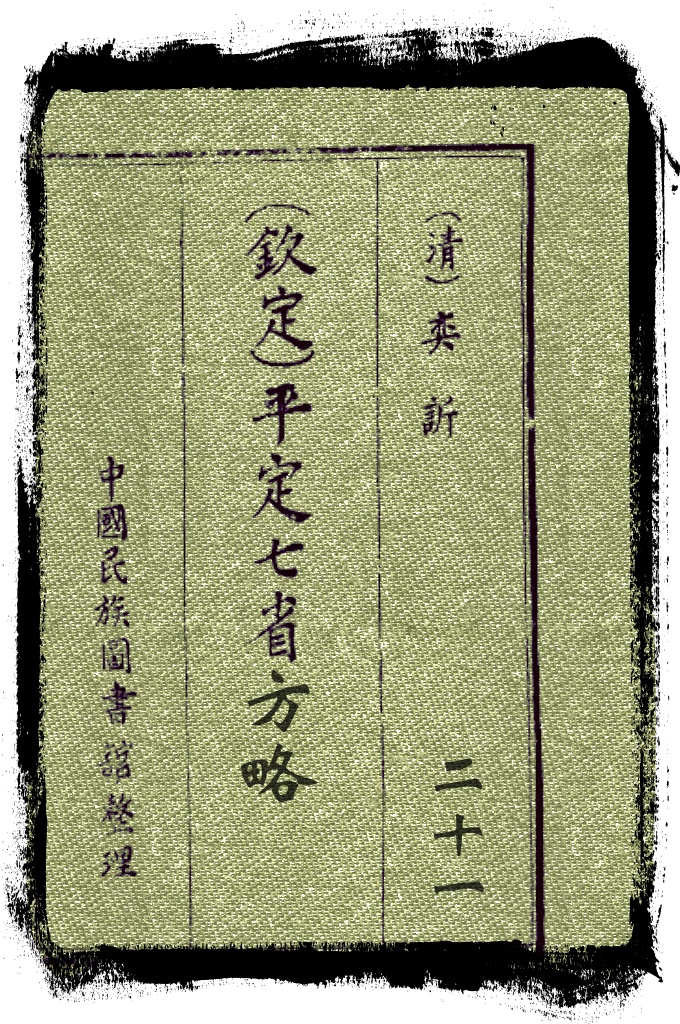 （清）奕訢
二十一
（欽定）平定七省方略
中國民族圖書館整理